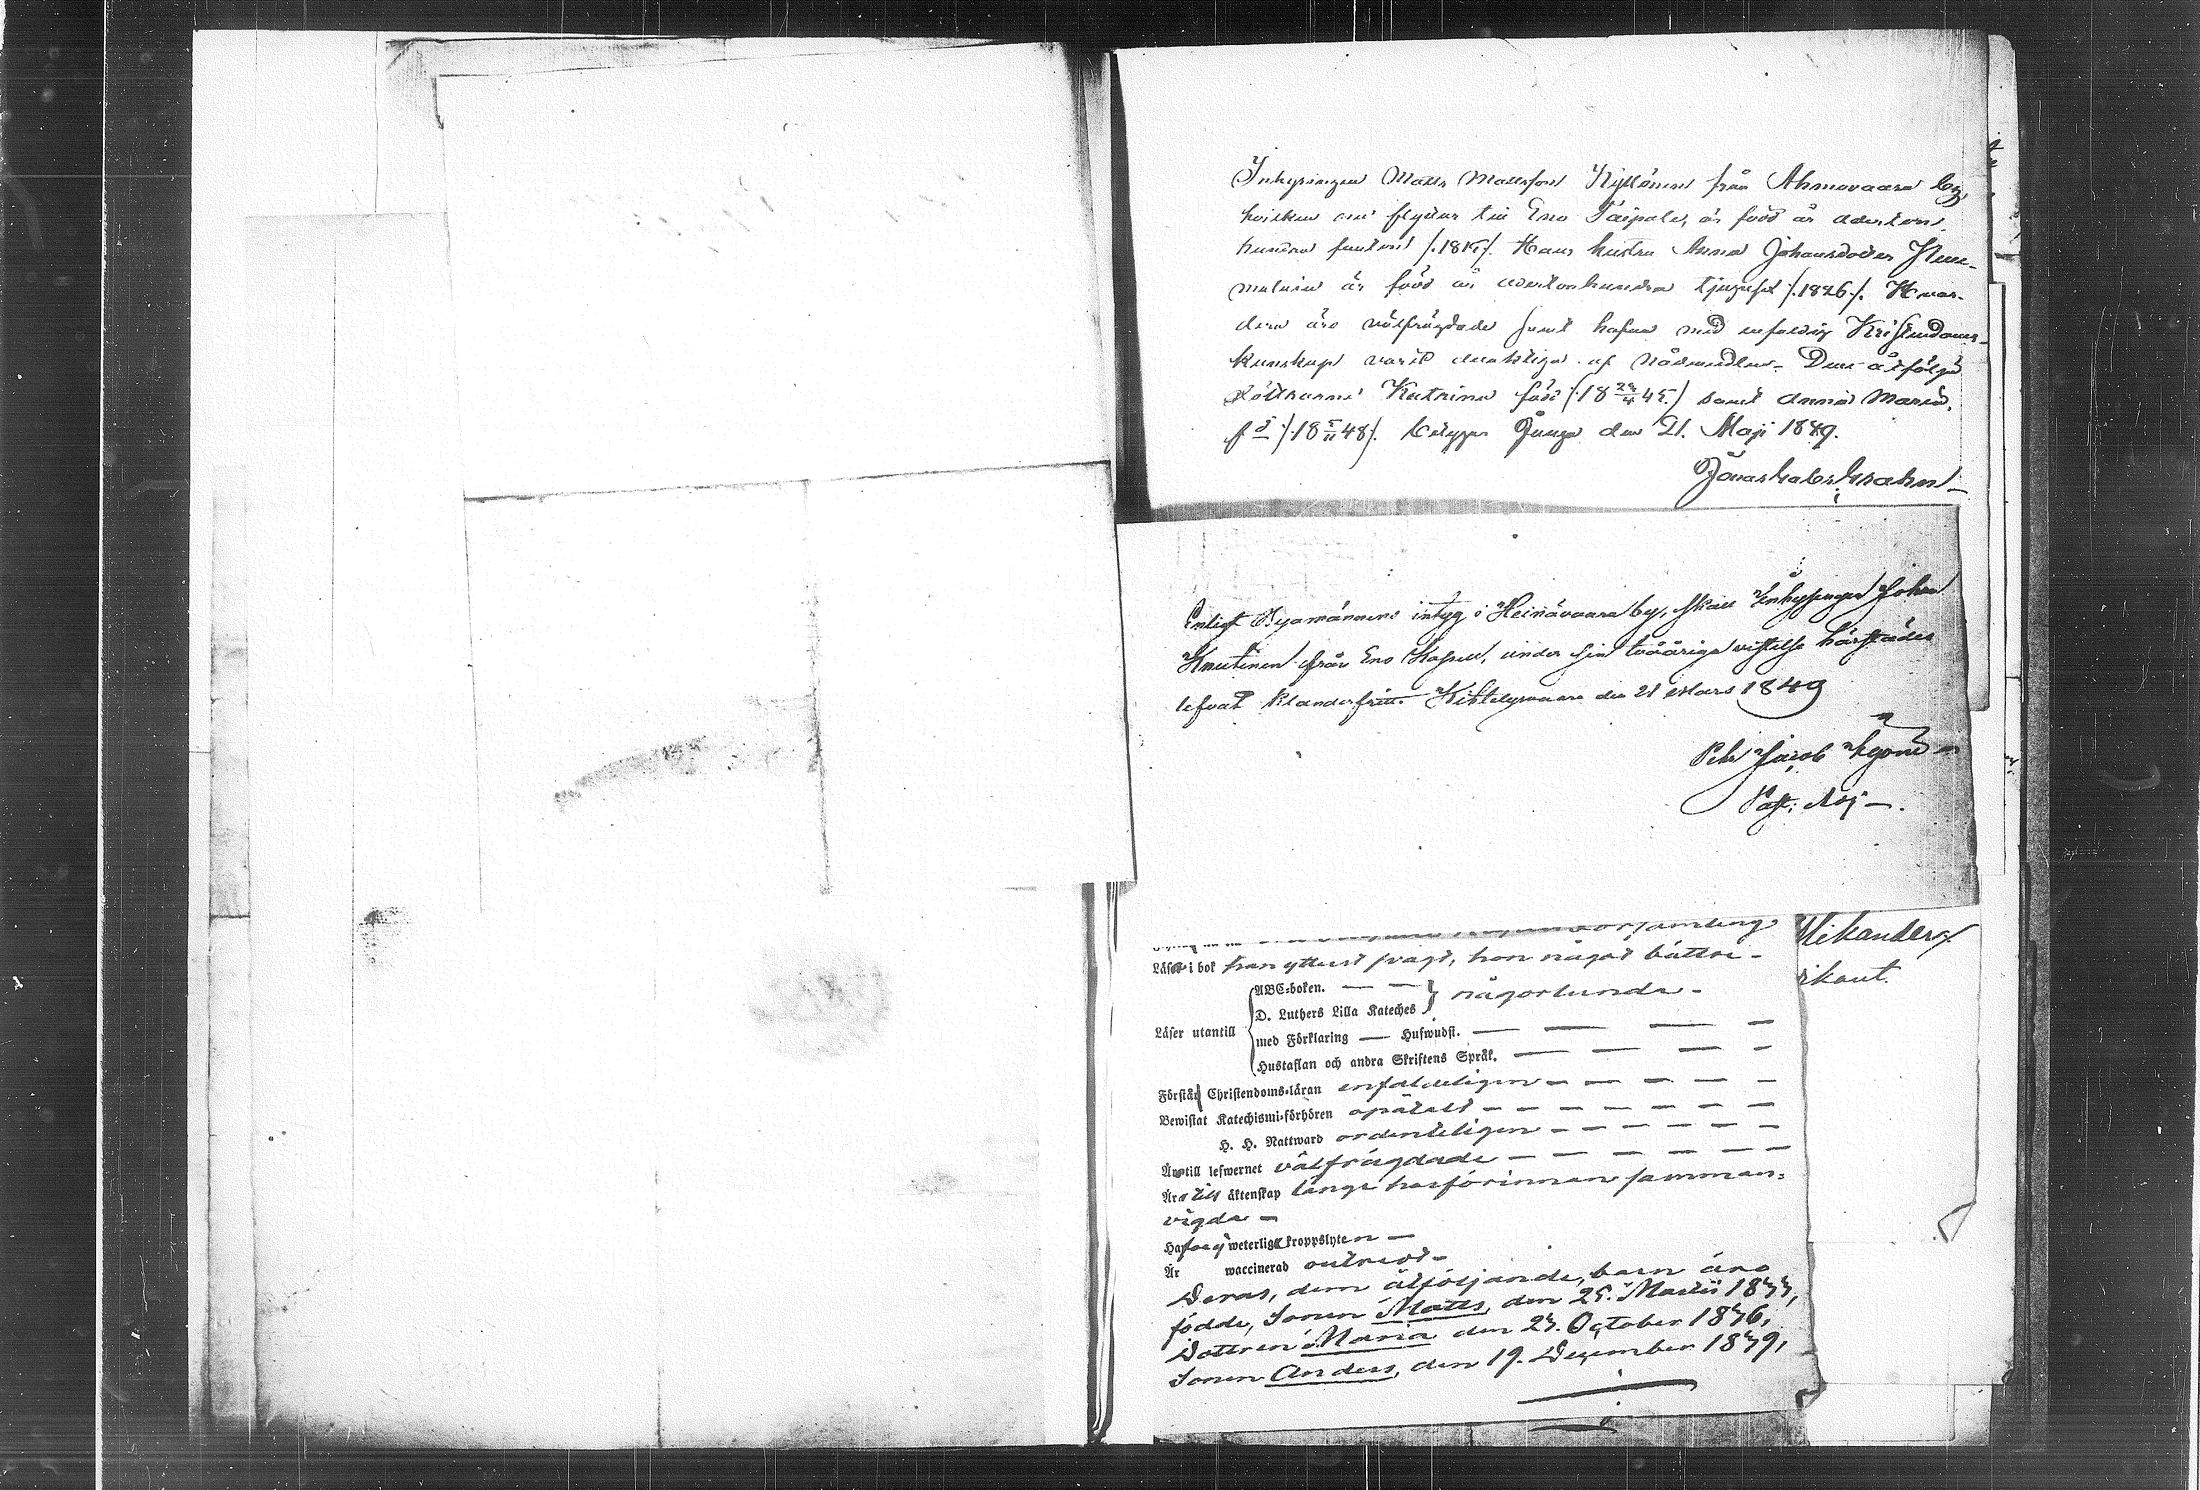 Inhysingen Matts Mattsson Kyllönen från Ahmovaara by,
hvilken nu flyttar till Eno Paipale, är född år aderton
hundra femton /.1815/. Hans hustru Anna Johansdotter
är född år adertonhundra tjugusex /.1826/. Hvar-
dera äro välfrägdade samt hafva med enfaldig Kristendoms-
kunskap varit delaktiga af nådemedlen. Dem åtfölja
döttrarne Katrina född (18 29/4 45.) samt Anna Maria,
född /.18 5/11 48/. betygar Juuga den 21. Maji 1849.
Jonas Grahn
Enligt Byamännens intyg i Heinävaara by, skall Inhysingen Johan
Knutinen från Eno Kapell, under sin tvååriga vistelse härstädes
lefvat klanderfritt. Kihtelysvaara den 21 Mars 1849
Pehr Jacob
Past: Adj.
församling
Läser i bok han ytterst svagt, hon något bättre -
Läser utantill
ABC-boken. — —
D. Luthers Lilla Kateches
någorlunda -
med Förklaring — Huswudst. — — — —
Hustaflan och andra Skriftens Språk. — — — —
Förstår Christendoms-läran enfaldeligen — — — — —
Bewistat Katechismi-förhören opåtalt — — — — — —
H. H. Nattward ordenteligen — — — — — —
Äro till lefwernet välfrägdade — — — — — —
Äro till äktenskap länge härförinnan samman-
vigda —
Hafva ej weterliga kroppslyten —
Är waccinerad outredt -
Deras, dem åtföljande, barn äro
födde, Sonen Matts, den 25. Martii 1844,
Dottren Maria den 24. October 1846,
Sonen Anders, den 19. December 1849,
ikant.